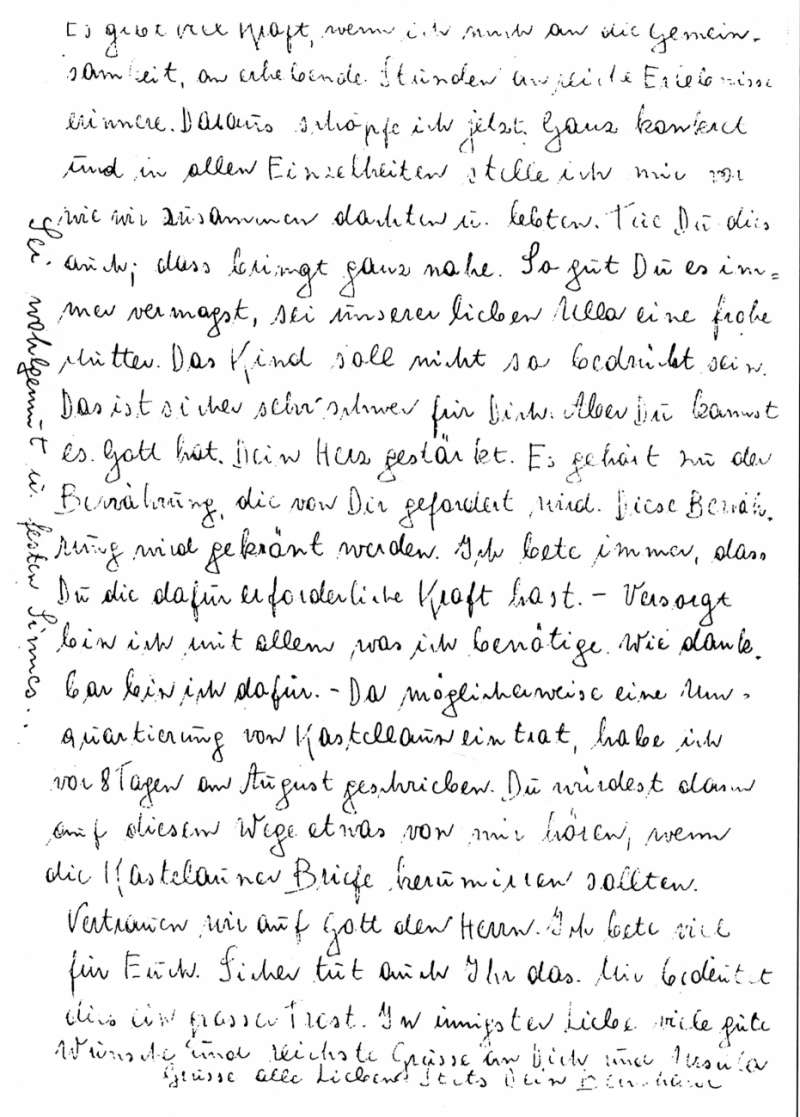 Es gibt viel Kraft, wenn ich mich an die Gemein-
samkeit, an erhebende Stunden an reiche Erlebnisse
erinnere. Daraus schöpfe ich jetzt. Ganz konkret
und in allen Einzelheiten stelle ich mir vor
wie wir zusammen dachten u. lebten. Tue Du dies
auch; dass bringt ganz nahe. So gut Du es im=
mer vermagst, sei unserer lieben Ulla eine frohe
Mutter. Das Kind soll nicht so bedrückt sein.
Das ist sicher sehr schwer für Dich. Aber Du kannst
es. Gott hat Dein Herz gestärkt. Es gehört zu der
Bewährung, die von Dir gefordert wird. Diese Bewäh-
rung wird gekrönt werden. Ich bete immer, dass
Du die dafür erforderliche Kraft hast. – Versorgt
bin ich mit allem was ich benötige. Wie dank-
bar bin ich dafür. – Da möglicherweise eine Um-
quartierung von Kastellaun eintrat, habe ich
vor 8 Tagen an August geschrieben. Du würdest dann
auf diesem Wege etwas von mir hören, wenn
die Kastelauner Briefe herumirren sollten.
Vertrauen wir auf Gott den Herrn. Ich bete viel
für Euch. Sicher tut auch Ihr das. Mir bedeutet
dies ein grosser Trost. In innigster Liebe viele gute
Wünsche und reichste Grüsse an Dich und Ursula
Grüsse alle Lieben Stets Dein
Sei wohlgemut u. festen Sinnes..